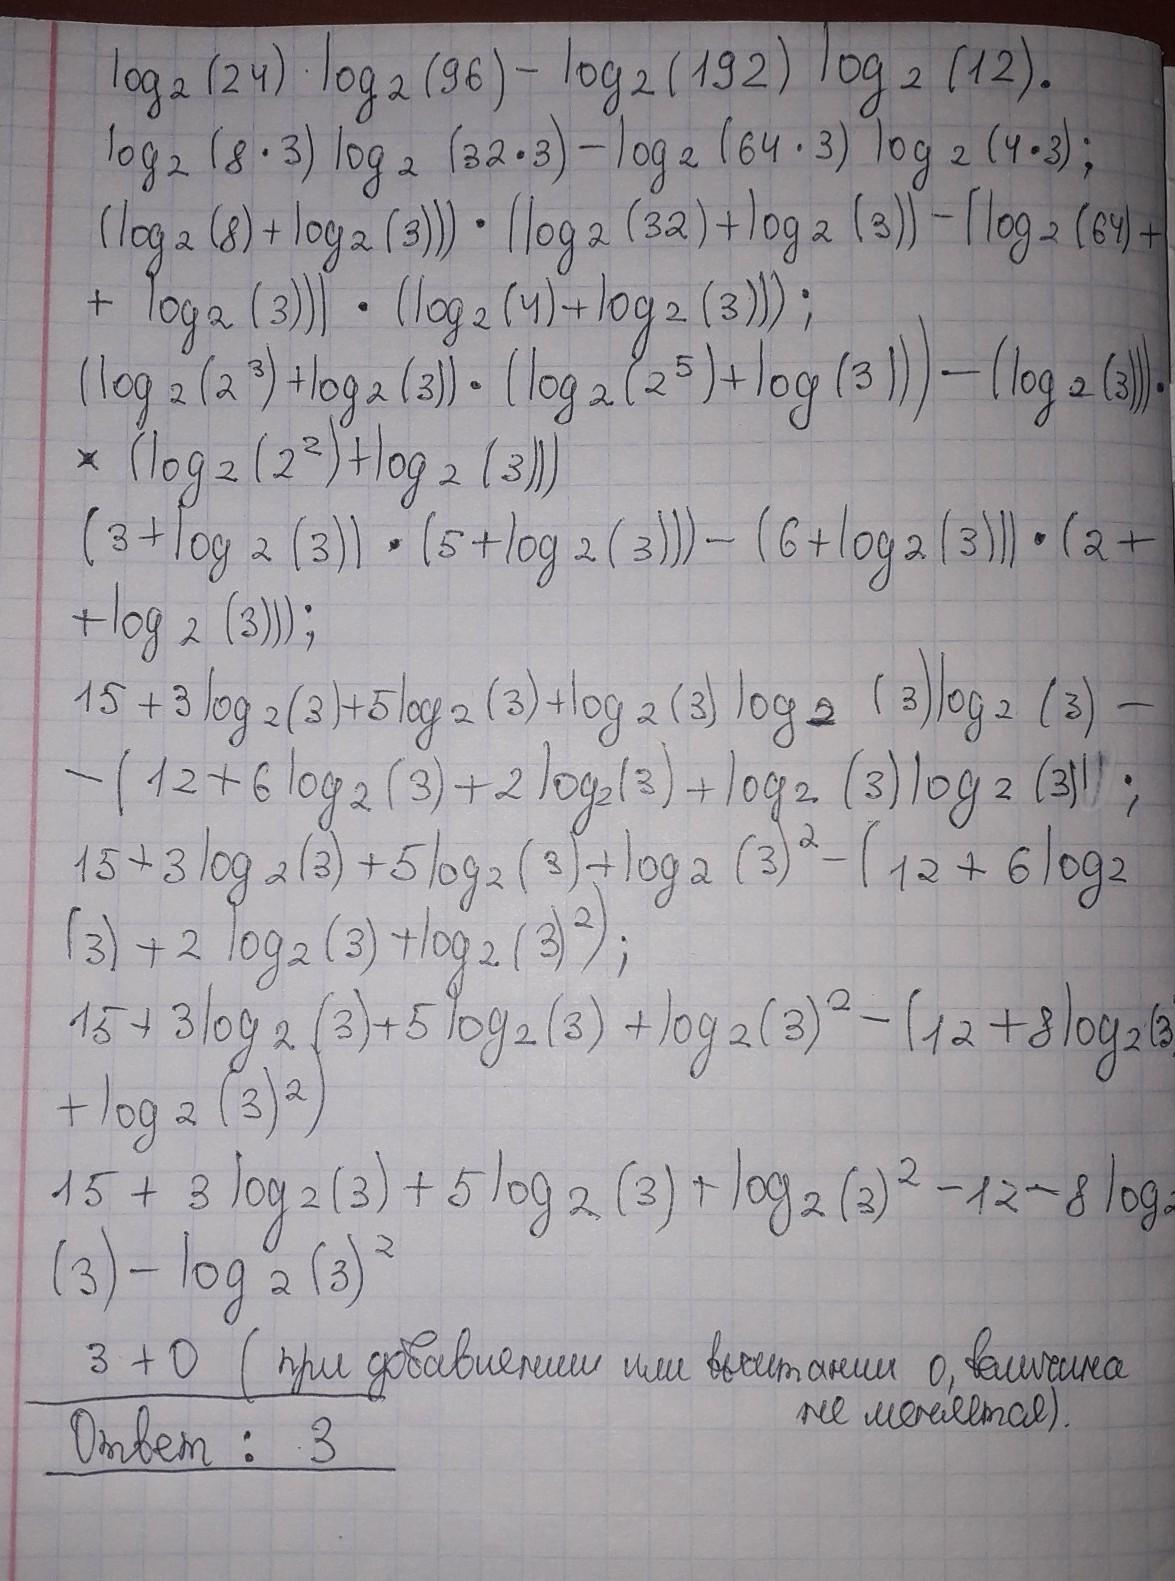 log₂(24) · log₂(96) – log₂(192) log₂(12).
log₂(8·3) log₂(32·3) – log₂(64·3) log₂(4·3);
(log₂(8)+log₂(3))) · (log₂(32)+log₂(3)) – (log₂(64)+
+ log₂(3))) · (log₂(4)+log₂(3)));
(log₂(2³)+log₂(3)) · (log₂(2⁵)+log(3))) – (log₂(3))) ·
× (log₂(2²)+log₂(3)))
(3+log₂(3)) · (5+log₂(3))) – (6+log₂(3))) · (2+
+log₂(3)));
15+3log₂(3)+5log₂(3)+log₂(3) log₂(3)log₂(3) –
–(12+6log₂(3)+2log₂(3)+log₂(3)log₂(3));
15+3log₂(3)+5log₂(3)+log₂(3)²–(12+6log₂
(3)+2log₂(3)+log₂(3)²);
15+3log₂(3)+5log₂(3)+log₂(3)²–(12+8log₂(3)
+log₂(3)²)
15+3log₂(3)+5log₂(3)+log₂(3)²–12–8log₂
(3)–log₂(3)²
3+0 (при добавлении или вычитании 0, величина
не меняется).
Ответ: 3